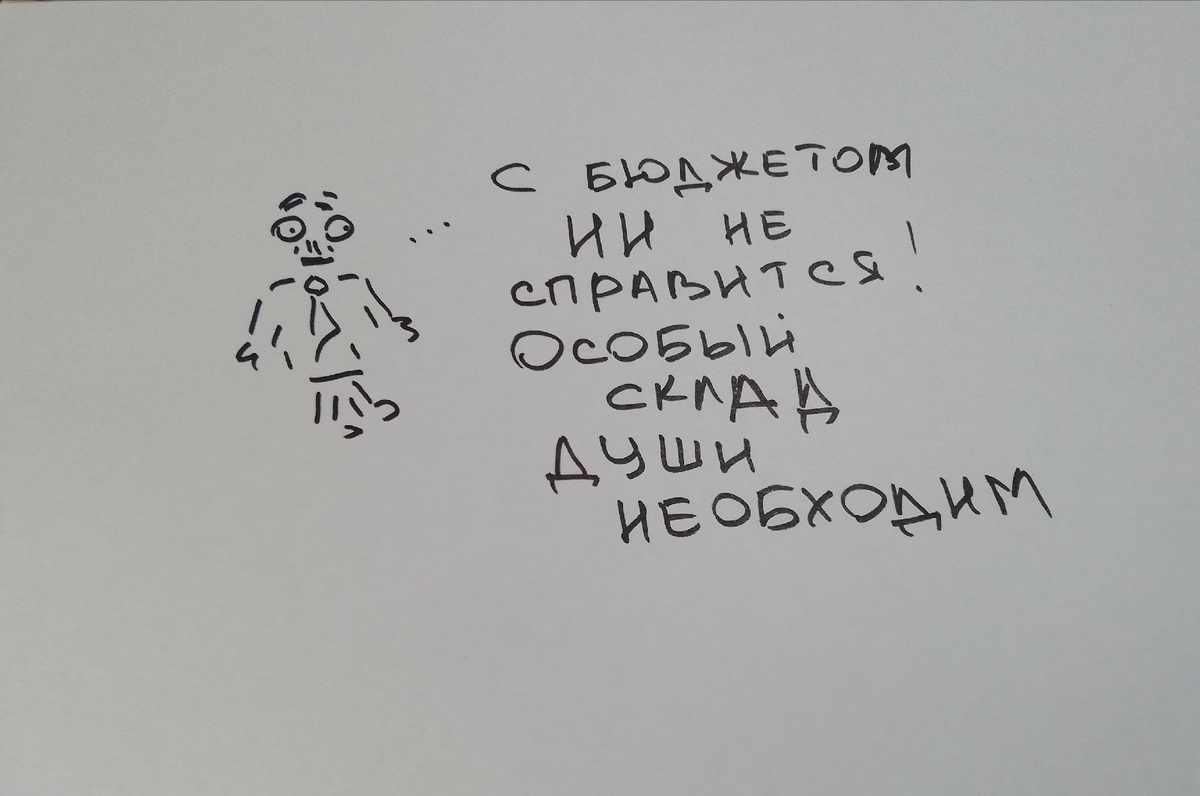 ... С БЮДЖЕТОМ
ИИ НЕ
СПРАВИТСЯ!
ОСОБЫЙ
СКЛАД
ДУШИ
НЕОБХОДИМ